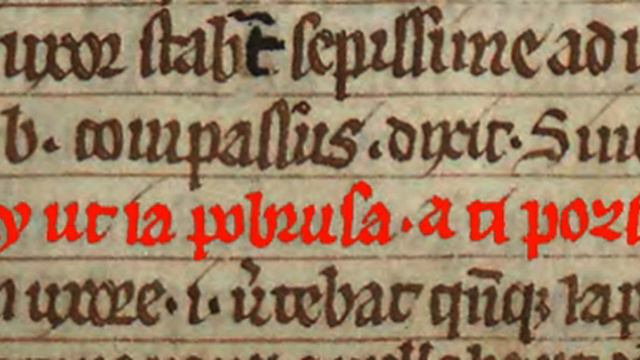 uxor stabat sepissime ad
b. compassus. dixit. Sine
y ut ia pobrusa. a ti poz
uxore. i. u̇tebat qn̄qꝫ lap